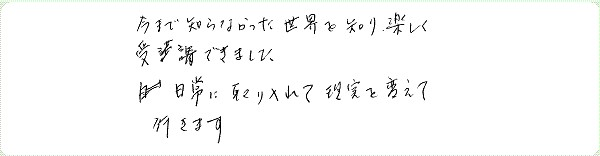 今まで知らなかった世界を知り、楽しく
受講できました。
日常に取り入れて現実を変えて
行きます